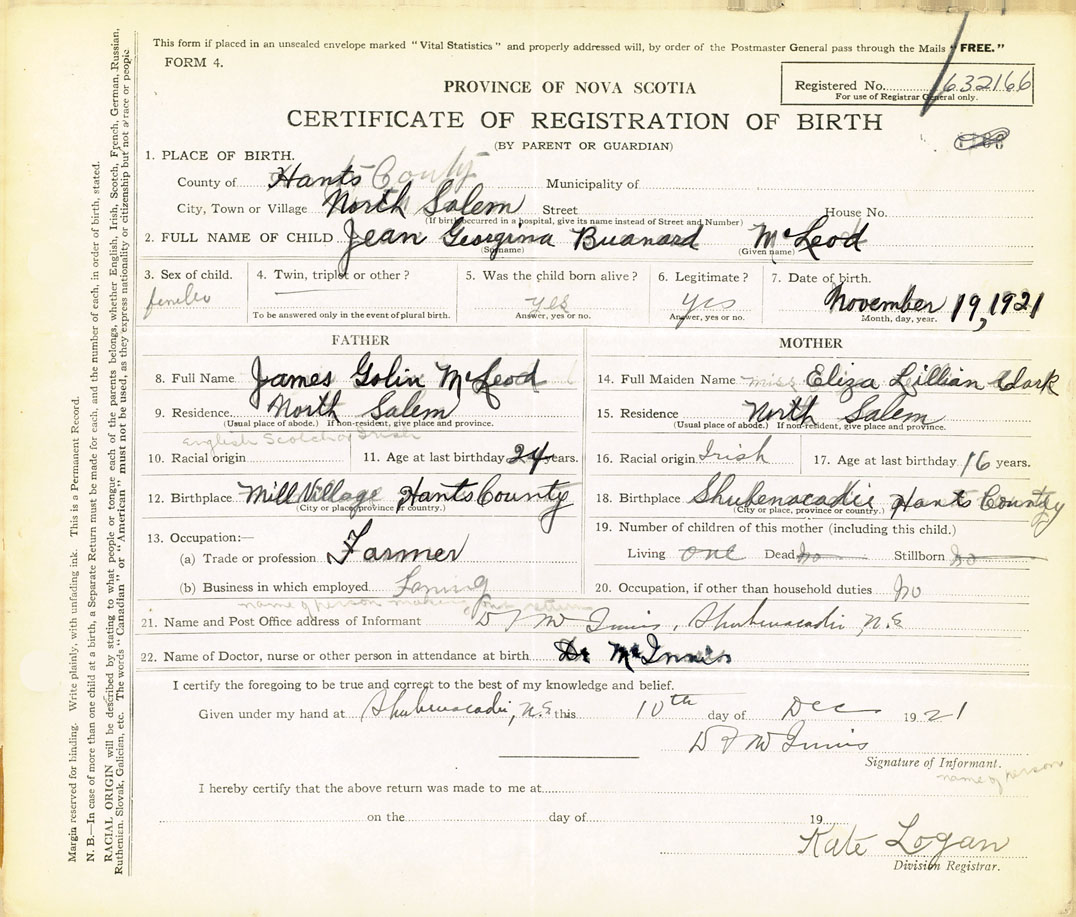 This form if placed in an unsealed envelope marked "Vital Statistics" and properly addressed will, by order of the Postmaster General pass through the Mails "FREE."
FORM 4.
Registered No. 632166
For use of Registrar General only.
PROVINCE OF NOVA SCOTIA
CERTIFICATE OF REGISTRATION OF BIRTH
(BY PARENT OR GUARDIAN)
1. PLACE OF BIRTH.
County of Hants County Municipality of
City, Town or Village North Salem Street House No.
(If birth occurred in a hospital, give its name instead of Street and Number)
2. FULL NAME OF CHILD Jean Georgina Buanard McLeod
(Surname) (Given name)
3. Sex of child. 4. Twin, triplet or other? 5. Was the child born alive? 6. Legitimate? 7. Date of birth.
yes yes November 19, 1921
To be answered only in the event of plural birth. Answer, yes or no. Answer, yes or no. Month, day, year.
FATHER
8. Full Name James Golin McLeod
9. Residence North Salem
(Usual place of abode.) If non-resident, give place and province.
English Scotch or Irish
10. Racial origin 11. Age at last birthday 24 years.
12. Birthplace Mill Village Hants County
(City or place, province or country.)
13. Occupation:—
(a) Trade or profession Farmer
(b) Business in which employed
MOTHER
14. Full Maiden Name miss Eliza Lillian Clark
15. Residence North Salem
(Usual place of abode.) If non-resident, give place and province.
16. Racial origin Irish 17. Age at last birthday 16 years.
18. Birthplace Shubenacadie Hants County
(City or place, province or country.)
19. Number of children of this mother (including this child.)
Living one Dead no Stillborn no
20. Occupation, if other than household duties no
name of person making out return
21. Name and Post Office address of Informant D F McInnis, Shubenacadie, N.S
22. Name of Doctor, nurse or other person in attendance at birth. Dr McInnis
I certify the foregoing to be true and correct to the best of my knowledge and belief.
Given under my hand at Shubenacadie, N.S this 10th day of Dec 1921
D F McInnis
Signature of Informant.
name of person
I hereby certify that the above return was made to me at
on the day of 19
Kate Logan
Division Registrar.
Margin reserved for binding. Write plainly, with unfading ink. This is a Permanent Record.
N. B.—In case of more than one child at a birth, a Separate Return must be made for each, and the number of each, in order of birth, stated.
RACIAL ORIGIN will be described by stating to what people or tongue each of the parents belongs, whether English, Irish, Scotch, French, German, Russian,
Ruthenien, Slovak, Galician, etc. The words "Canadian" or "American" must not be used, as they express nationality or citizenship but not a race or people